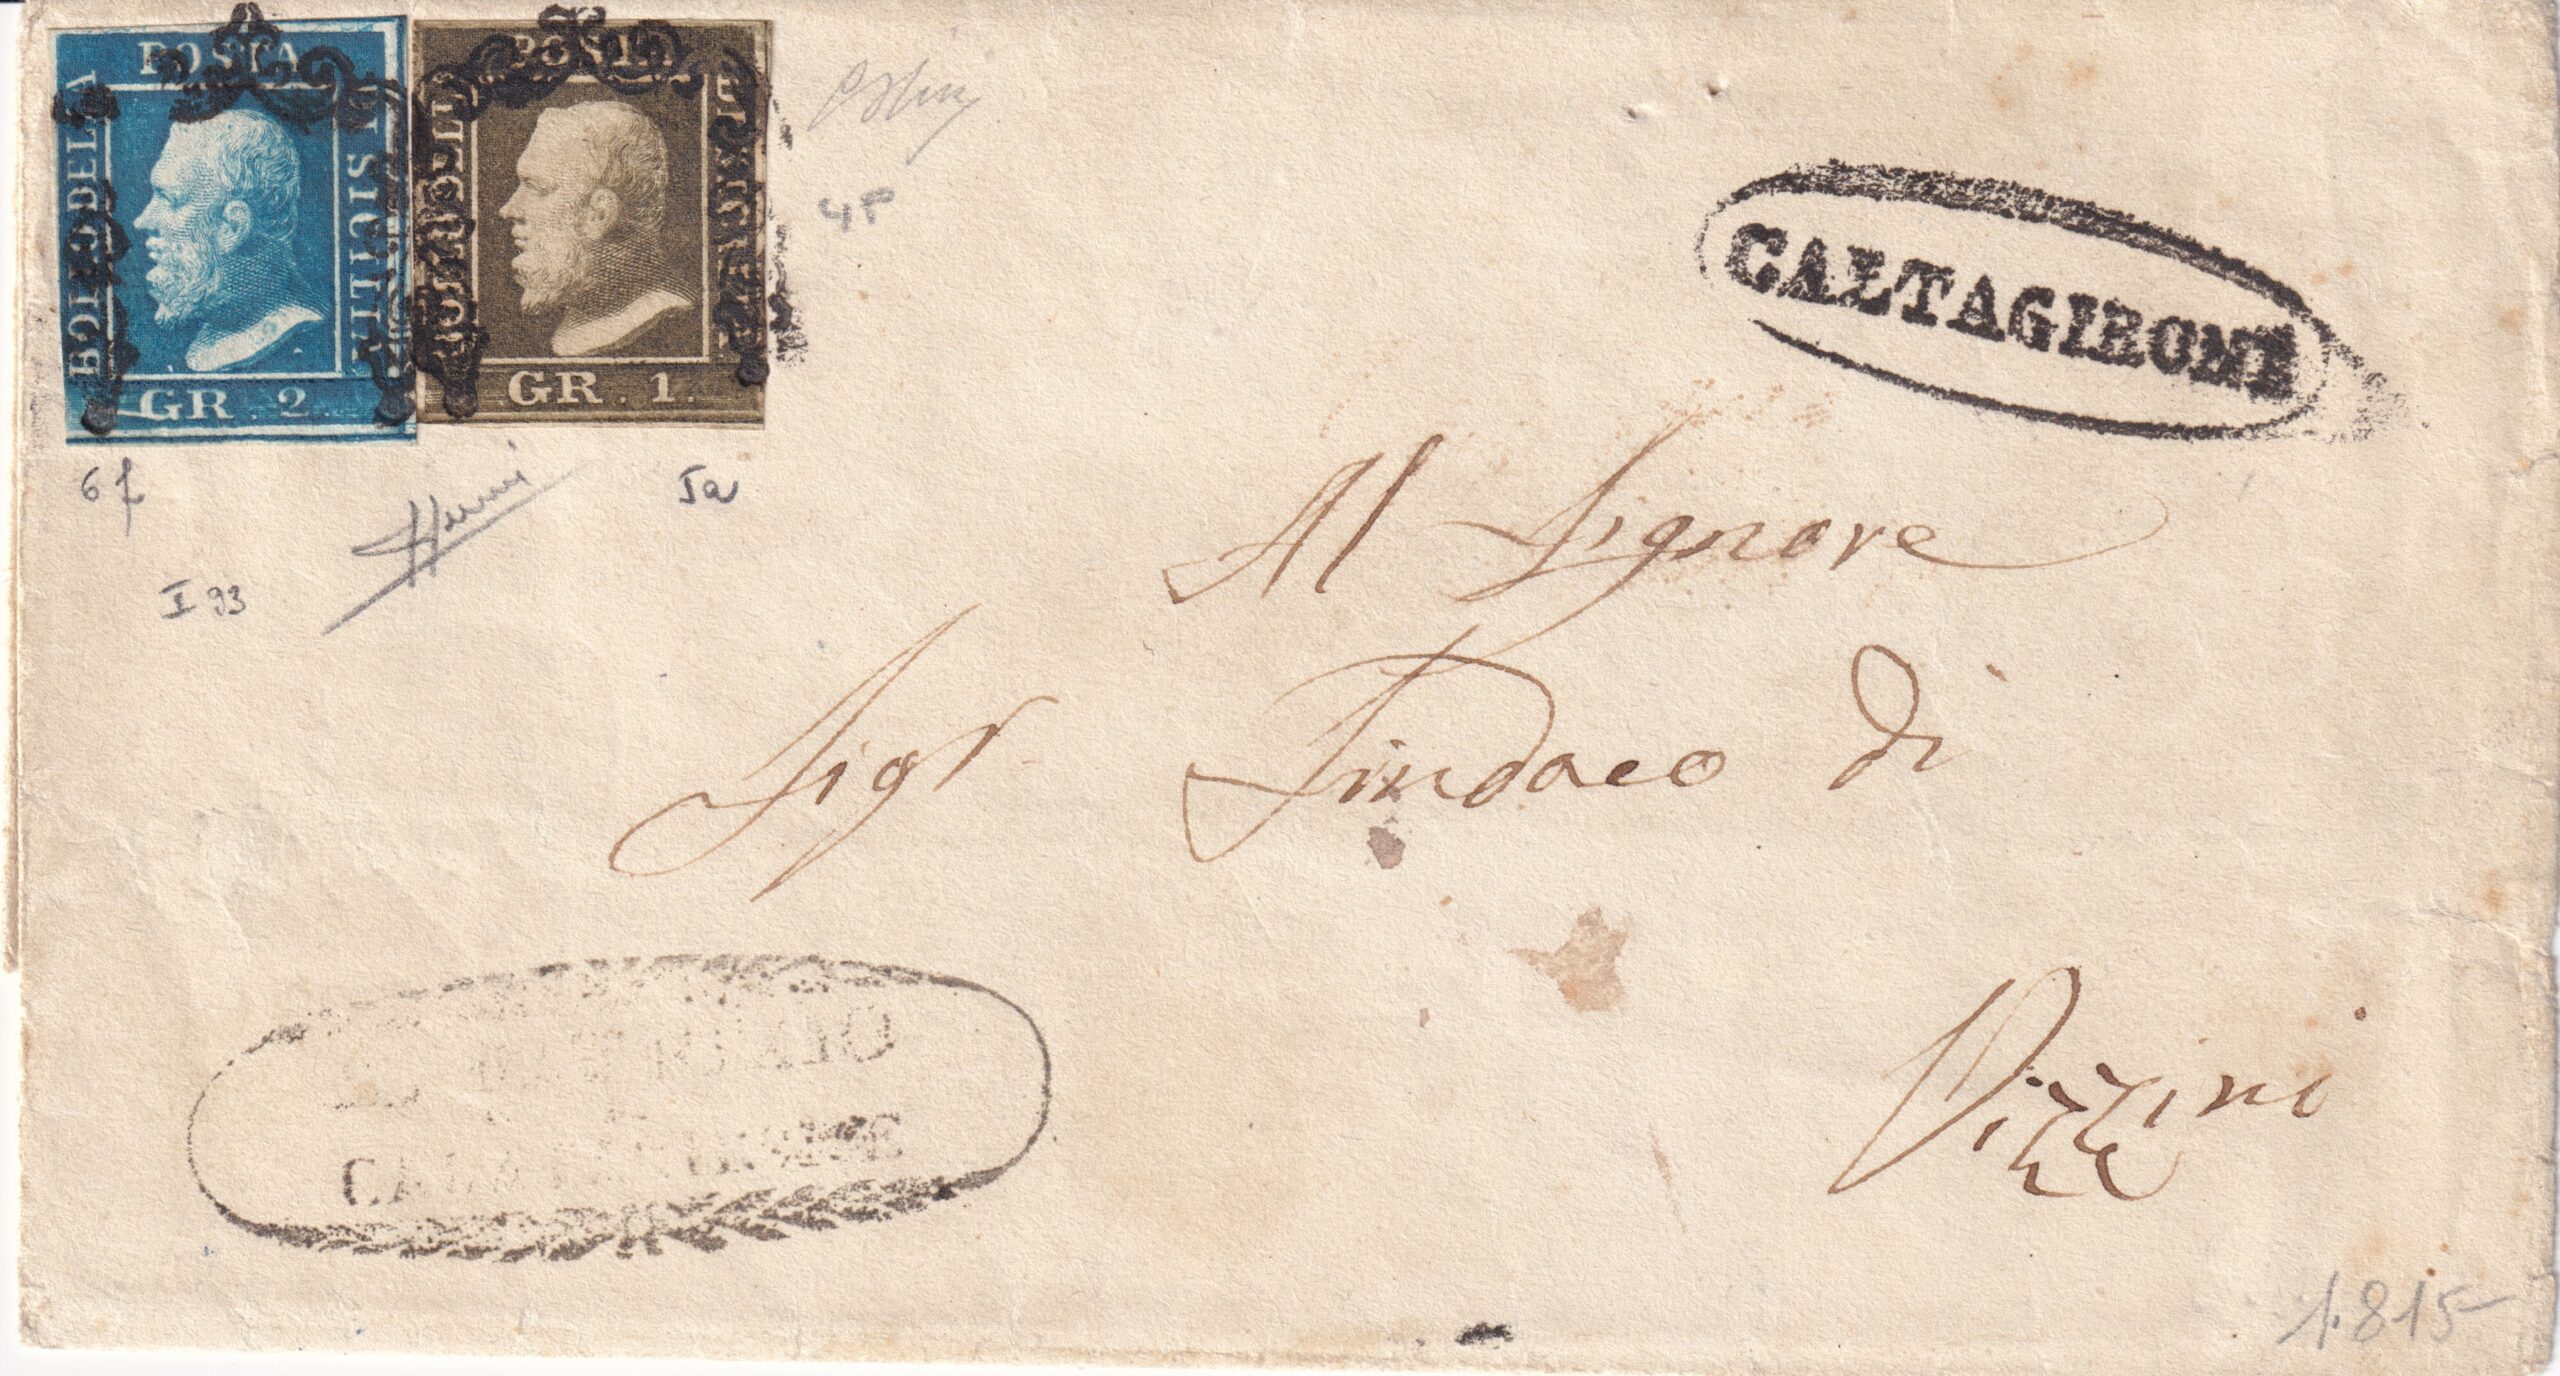 POSTA
BOLLO DELLA
DI SICILIA
GR. 2.
POSTA
BOLLO DELLA
DI SICILIA
GR. 1.
4 P
6 f
Ia
I 93
CALTAGIRONE
Al Signore
Sigr Sindaco di
Vizzini
1.815